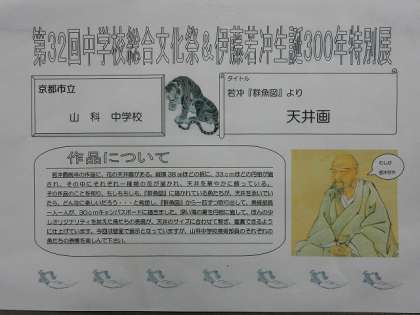 第32回中学校総合文化祭&伊藤若冲生誕300年特別展
京都市立
山 科 中学校
タイトル
若冲『群魚図』より
天井画
作品について
若冲最晩年の作品に、花の天井画がある。縦横38㎝ほどの板に、33㎝ほどの円相が描か
れ、その中にそれぞれ一種類の花が描かれ、天井を華やかに飾っている。
その作品のことを知り、もしもも、『群魚図』に描かれている魚たちが、天井を泳いでい
たら、どんなに楽しいだろう・・・と発想し、『群魚図』から一匹ずつ取り出して、美術部員
一人一人が、30㎝キャンバスボードに描きました。深い海の藍を円相に施して、ほんの少
しオリジナリティを加えた魚たちの表現が、天井のサイズに合わせて繋ぎ、鑑賞できるよう
に仕上げています。今回は壁面で展示となっていますが、山科中学校美術部員のそれぞれの
魚たちの表情を楽しんで下さい。